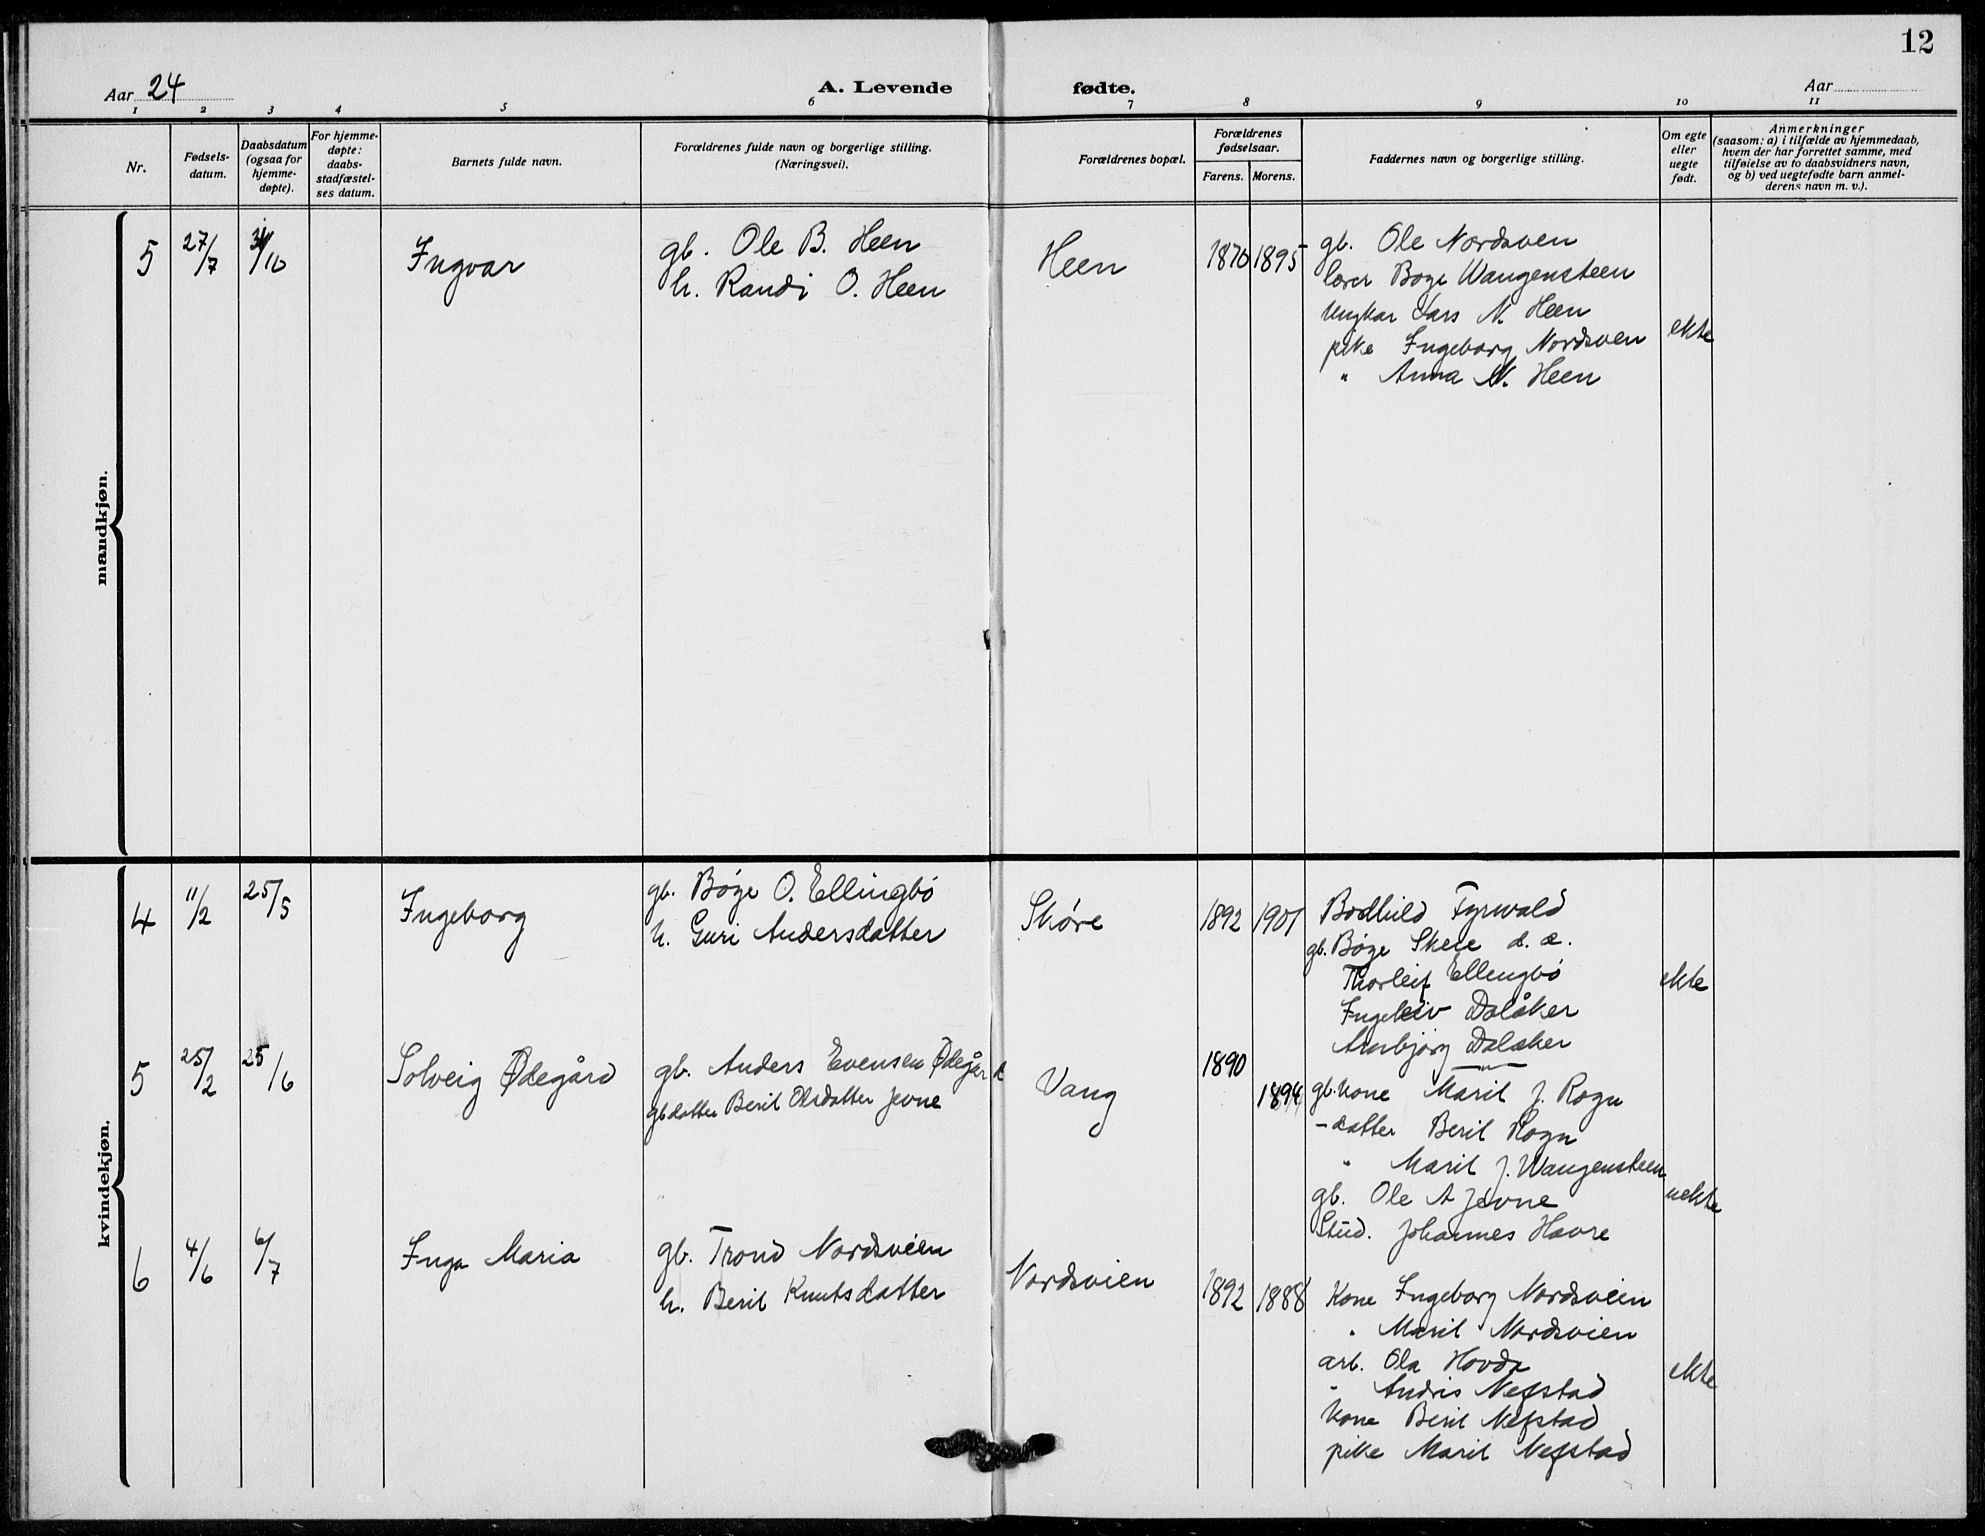 12
Aar 24
A. Levende fødte.
Aar
1 2 3 4 5 6 7 8 9 10 11
Nr.
Fødsels-
datum.
Daabsdatum
(ogsaa for
hjemme-
døpte).
For hjemme-
døpte:
daabs-
stadfæstel-
ses datum.
Barnets fulde navn.
Forældrenes fulde navn og borgerlige stilling.
(Næringsvei).
Forældrenes bopæl.
Forældrenes
fødselsaar.
Farens. Morens.
Faddernes navn og borgerlige stilling.
Om egte
eller
uegte
født.
Anmerkninger
(saasom: a) i tilfælde av hjemmedaab,
hvem der har forrettet samme, med
tilføielse av to daabsvidners navn,
og b) ved uegtefødte barn anmel-
derens navn m. v.).
mandkjøn.
5 27/7 /10 Ingvar
gb. Ole B. Heen
h. Randi O. Heen
Heen
1870 1895
gb. Ole Nordsven
lærer Boye Wangensteen
Ungkar Lars N. Heen
pike Ingeborg Nordsven
" Anna N. Heen
ekte
kvindekjøn.
4 11/2 25/5 Ingeborg
gb. Bøye O. Ellingbø
h. Guri Andersdatter
Skøre
1892 1901
Bodhild Fyrwald
gb. Bøye Skeie d. æ.
Thorleif Ellingbø
Ingeleiv Dalåker
Arnbjørg Dalaker
ekte
5 25/2 25/6 Solveig Ødegård
gb. Anders Evensen Ødegård
gbdatter Berit Olsdatter Jevne
Vang
1890
1894
gb. kone Marit J. Rogn
- datter Berit Rogn
" Marit J. Wangensteen
gb. Ole A Jevne
Stud. Johannes Havre
uekte
6 4/6 6/7 Inga Maria
gb. Trond Nordsveen
h. Berit Knutsdatter
Nordsvien
1892 1888
Kone Ingeborg Nordsveen
" Marit Nordsvien
arb. Ola Hovda
" Andris Nefstad
Kone Berit Nefstad
pike Marit Nefstad
ekte